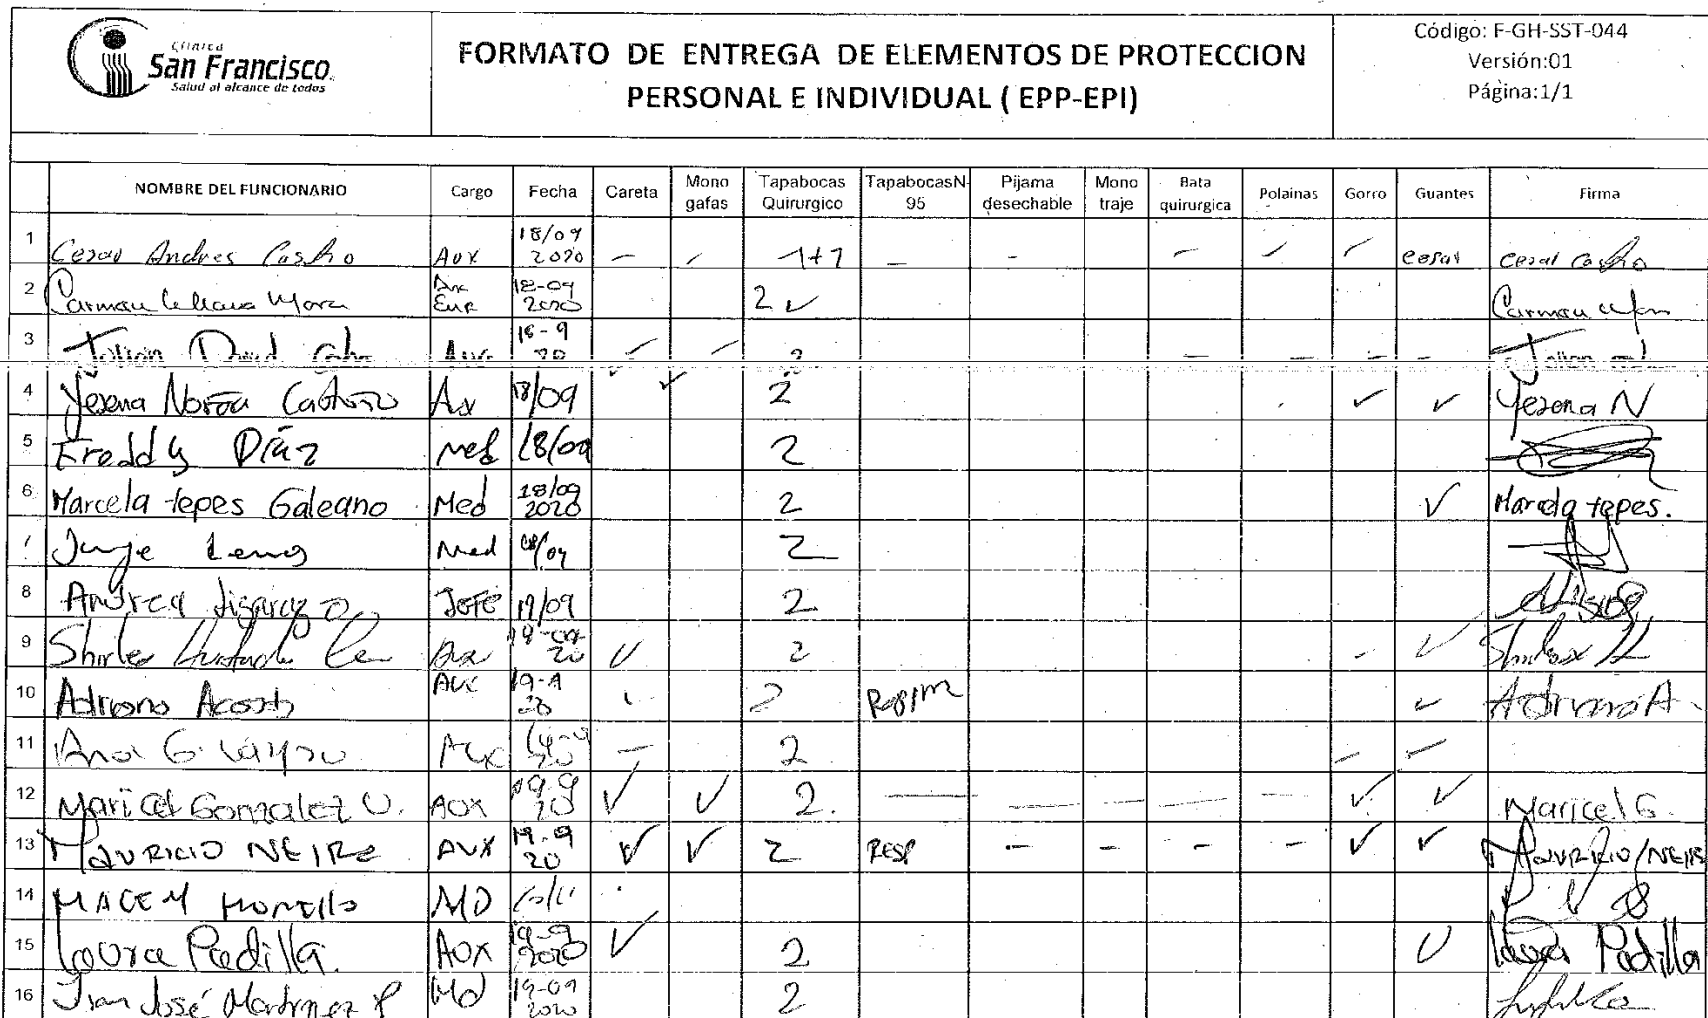 Clínica
San Francisco
Salud al alcance de todos
FORMATO DE ENTREGA DE ELEMENTOS DE PROTECCION
PERSONAL E INDIVIDUAL ( EPP-EPI)
Código: F-GH-SST-044
Versión:01
Página:1/1
NOMBRE DEL FUNCIONARIO Cargo Fecha Careta Mono gafas Tapabocas Quirurgico TapabocasN-95 Pijama desechable Mono traje Bata quirurgica Polainas Gorro Guantes Firma
1 Cesar Andres Castro Aux 18/09 2020 - - 1+1 - - - - - cesar cesar castro
2 Carmen Mora 18-09 2020 2 ✓ Carmen
3 Julian David 18-9 20 - - 2 - - - - Julian
4 Yesena Castro Ax 18/09 ✓ 2 ✓ ✓ Yesena N
5 Freddy Díaz Med 18/09 2
6 Marcela Yepes Galeano Med 18/09 2020 2 ✓ Marcela Yepes.
7 Jorge Med 2
8 Andrea Lizarazo Jefe 19/09 2
9 Shirley Aux 20 ✓ 2 - ✓
10 Adriana Acosta Aux 19-9 20 2 ✓ Adriana A
11 Ana G. Aux 20 - 2 - -
12 Maricel Gonzalez U. Aux 19-9 20 ✓ ✓ 2. - - - - - ✓ ✓ Maricel G.
13 Mauricio NEIRA AUX 19-9 20 ✓ ✓ 2 RESP - - - - ✓ ✓ Mauricio/NEIRA
14 MD
15 Laura Padilla. Aux 19-9 2020 ✓ 2 ✓ Laura Padilla
16 Juan José Martinez P Md 19-09 2020 2